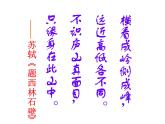 横看成岭侧成峰，
远近高低各不同。
不识庐山真面目，
只缘身在此山中。
——苏轼《题西林石壁》